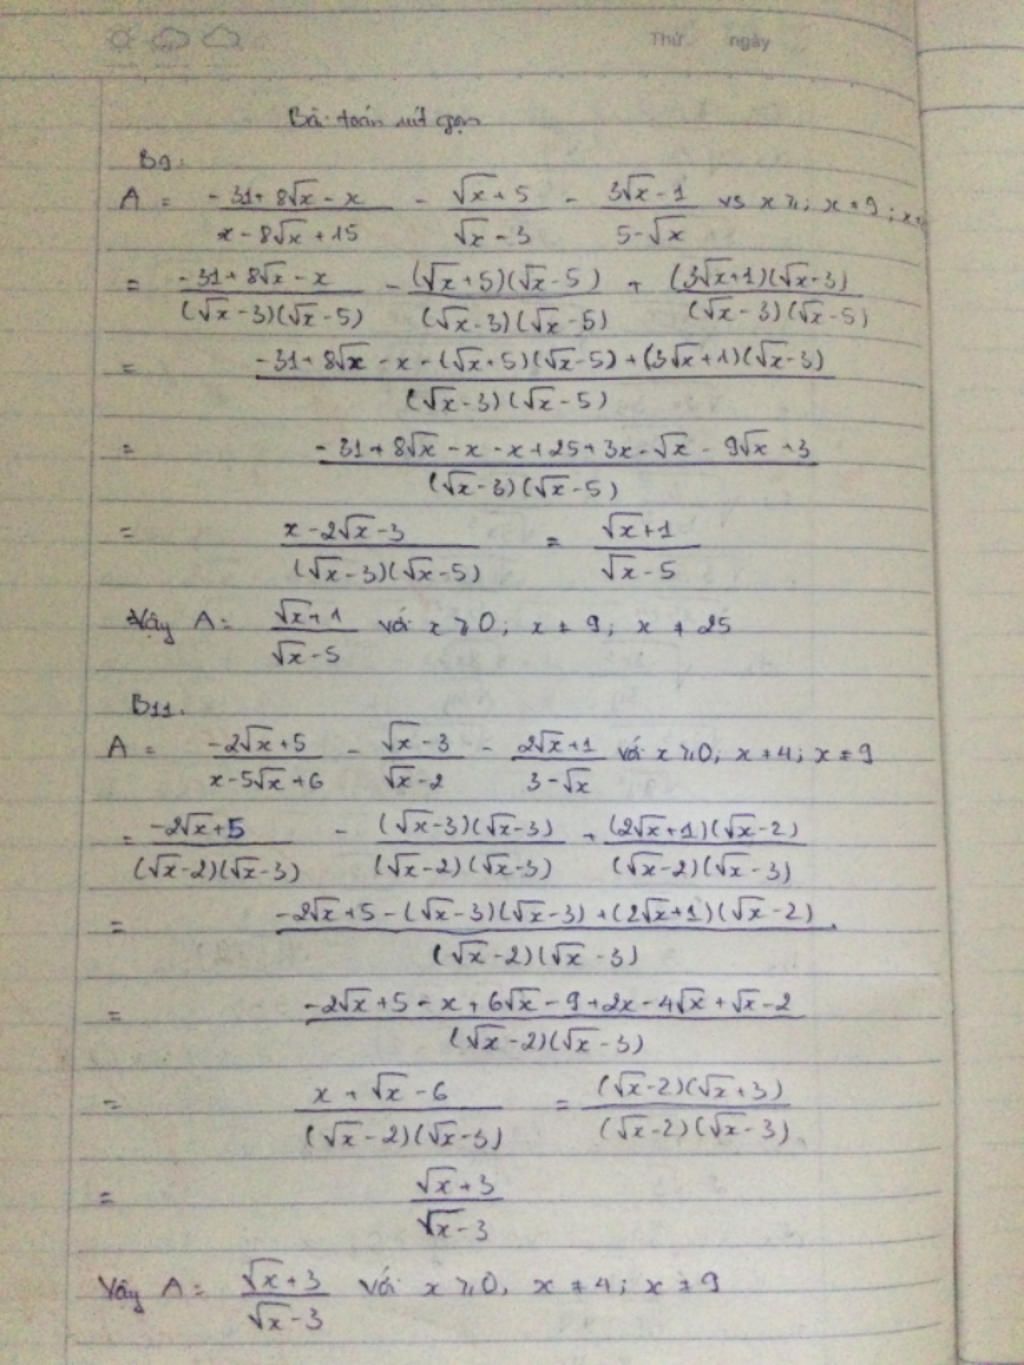 Thứ ngày
Bài toán rút gọn
B9.
A = (-31+8√x-x)/(x-8√x+15) - (√x+5)/(√x-3) - (3√x-1)/(5-√x) vs x ≥; x ≠ 9; x≠
= (-31+8√x-x)/((√x-3)(√x-5)) - ((√x+5)(√x-5))/((√x-3)(√x-5)) + ((3√x+1)(√x-3))/((√x-3)(√x-5))
= (-31+8√x-x-(√x+5)(√x-5)+(3√x+1)(√x-3))/((√x-3)(√x-5))
= (-31+8√x-x-x+25+3x-√x-9√x+3)/((√x-3)(√x-5))
= (x-2√x-3)/((√x-3)(√x-5)) = (√x+1)/(√x-5)
Vậy A = (√x+1)/(√x-5) với x ≥ 0; x ≠ 9; x ≠ 25
B11.
A = (-2√x+5)/(x-5√x+6) - (√x-3)/(√x-2) - (2√x+1)/(3-√x) với x ≥ 0, x ≠ 4; x ≠ 9
= (-2√x+5)/((√x-2)(√x-3)) - ((√x-3)(√x-3))/((√x-2)(√x-3)) + ((2√x+1)(√x-2))/((√x-2)(√x-3))
= (-2√x+5-(√x-3)(√x-3)+(2√x+1)(√x-2))/((√x-2)(√x-3))
= (-2√x+5-x+6√x-9+2x-4√x+√x-2)/((√x-2)(√x-3))
= (x+√x-6)/((√x-2)(√x-3)) = ((√x-2)(√x+3))/((√x-2)(√x-3))
= (√x+3)/(√x-3)
Vậy A = (√x+3)/(√x-3) với x ≥ 0, x ≠ 4; x ≠ 9